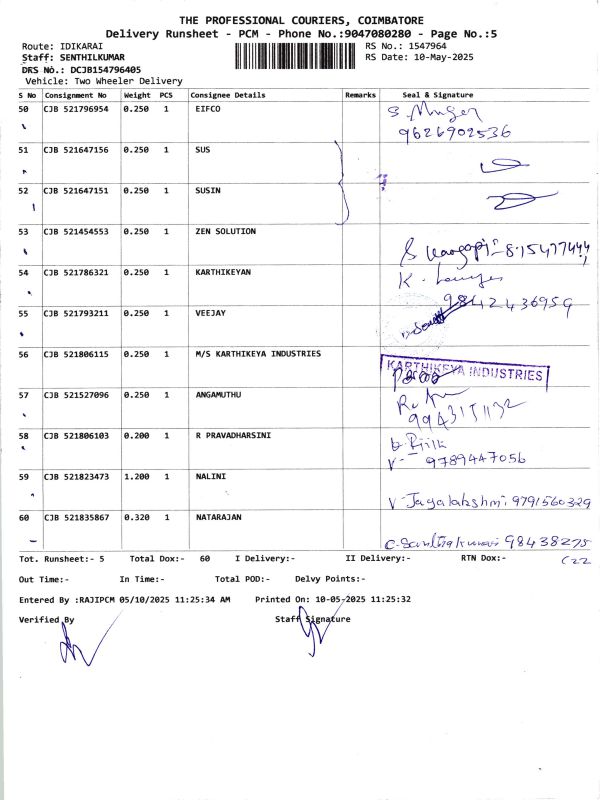 THE PROFESSIONAL COURIERS, COIMBATORE
Delivery Runsheet - PCM - Phone No.:9047080280 - Page No.:5
Route: IDIKARAI RS No.: 1547964
Staff: SENTHILKUMAR RS Date: 10-May-2025
DRS No.: DCJB154796405
Vehicle: Two Wheeler Delivery
S No Consignment No Weight PCS Consignee Details Remarks Seal & Signature
50 CJB 521796954 0.250 1 EIFCO
9626902536
51 CJB 521647156 0.250 1 SUS
52 CJB 521647151 0.250 1 SUSIN
53 CJB 521454553 0.250 1 ZEN SOLUTION
54 CJB 521786321 0.250 1 KARTHIKEYAN K.
9842436959
55 CJB 521793211 0.250 1 VEEJAY
56 CJB 521806115 0.250 1 M/S KARTHIKEYA INDUSTRIES
KARTHIKEYA INDUSTRIES
57 CJB 521527096 0.250 1 ANGAMUTHU
58 CJB 521806103 0.200 1 R PRAVADHARSINI
9789447056
59 CJB 521823473 1.200 1 NALINI
V. Jayalakshmi 9791560329
60 CJB 521835867 0.320 1 NATARAJAN
98438275
Tot. Runsheet:- 5 Total Dox:- 60 I Delivery:- II Delivery:- RTN Dox:-
Out Time:- In Time:- Total POD:- Delvy Points:-
Entered By :RAJIPCM 05/10/2025 11:25:34 AM Printed On: 10-05-2025 11:25:32
Verified By Staff Signature